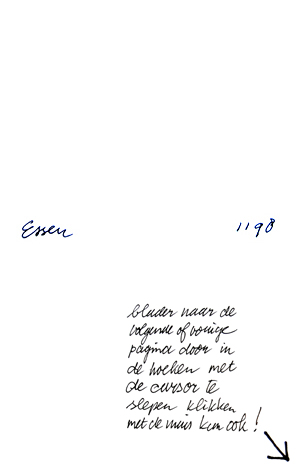 Essen 1198
blader naar de
volgende of vorige
pagina door in
de hoeken met
de cursor te
slepen klikken
met de muis kan ook!